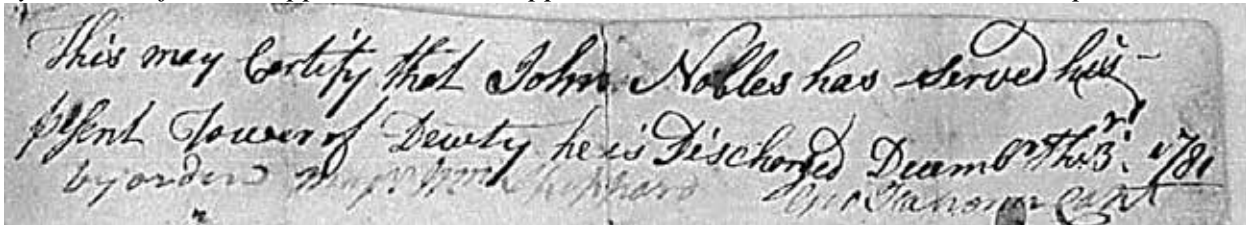 This may Certify that John Nobles has Served his
p^sent Tower of Dewty he is Discharged Decemb^r th 3^rd 1781
by order Maj^r Wm Shephard Capt